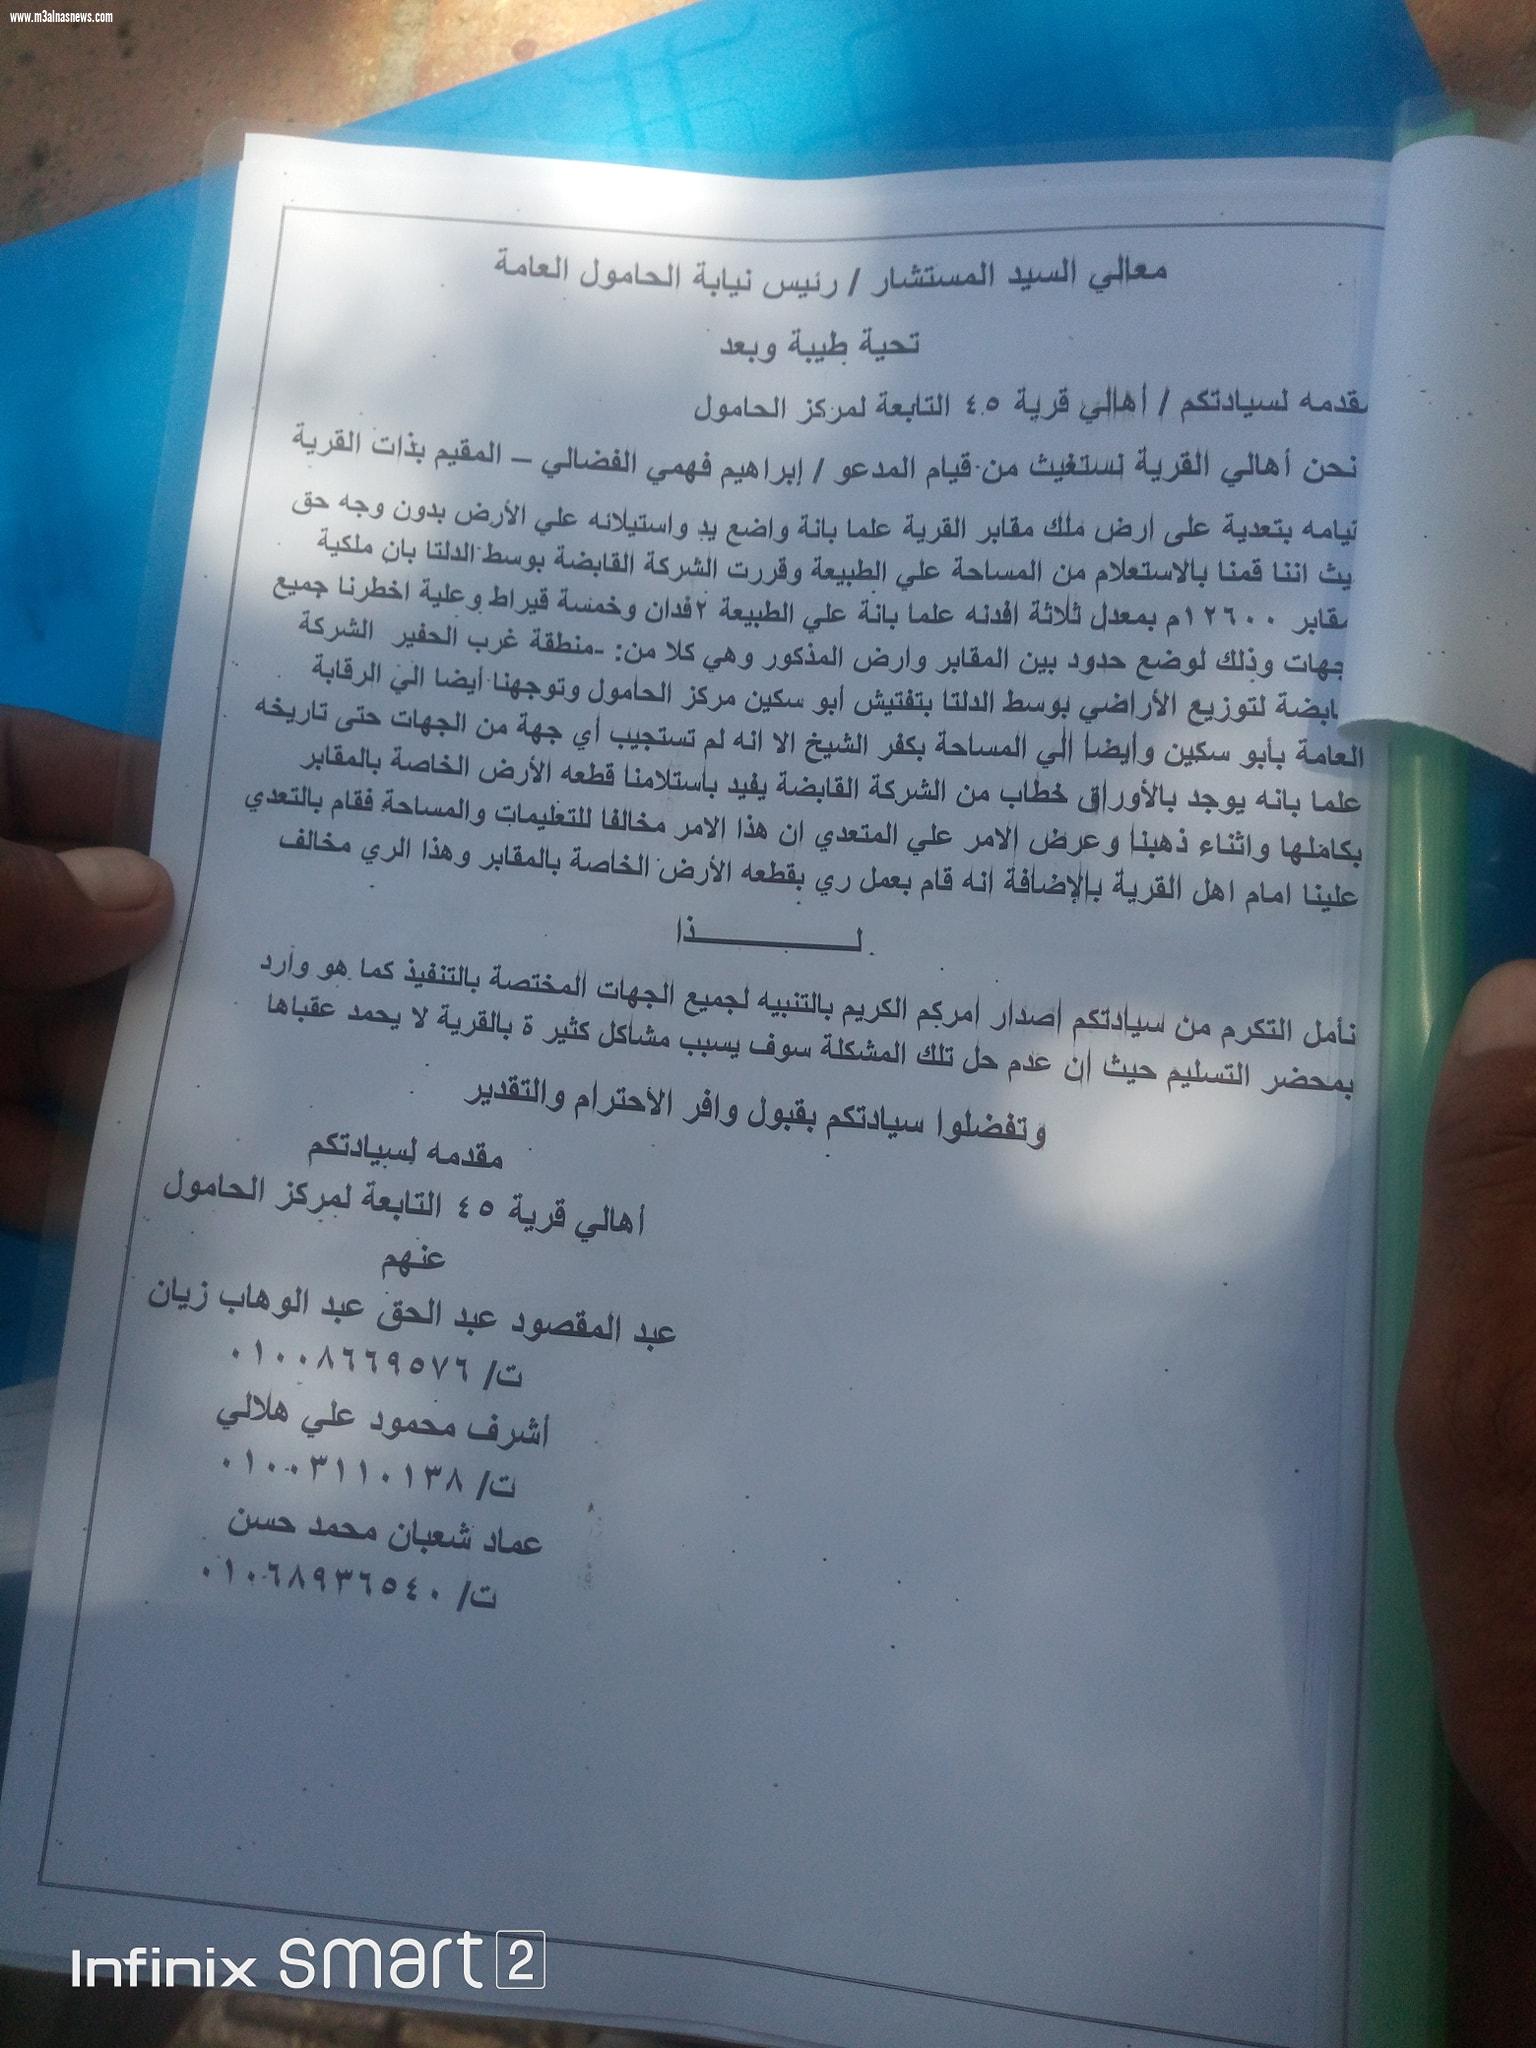 www.m3alnasnews.com
معالي السيد المستشار / رئيس نيابة الحامول العامة
تحية طيبة وبعد
مقدمه لسيادتكم / أهالي قرية ٤٥ التابعة لمركز الحامول
نحن أهالي القرية نستغيث من قيام المدعو / إبراهيم فهمي الفضالي – المقيم بذات القرية
بتعدية على ارض ملك مقابر القرية علما بانة واضع يد واستيلائه علي الأرض بدون وجه حق
اننا قمنا بالاستعلام من المساحة علي الطبيعة وقررت الشركة القابضة بوسط الدلتا بان ملكية
١٢٦٠٠م بمعدل ثلاثة افدنه علما بانة علي الطبيعة ٢فدان وخمسة قيراط وعلية اخطرنا جميع
وذلك لوضع حدود بين المقابر وارض المذكور وهي كلا من: -منطقة غرب الحفير الشركة
لتوزيع الأراضي بوسط الدلتا بتفتيش أبو سكين مركز الحامول وتوجهنا أيضا الي الرقابة
العامة بأبو سكين وأيضا الي المساحة بكفر الشيخ الا انه لم تستجيب أي جهة من الجهات حتى تاريخه
علما بانه يوجد بالأوراق خطاب من الشركة القابضة يفيد باستلامنا قطعه الأرض الخاصة بالمقابر
بكاملها واثناء ذهبنا وعرض الامر علي المتعدي ان هذا الامر مخالفا للتعليمات والمساحة فقام بالتعدي
علينا امام اهل القرية بالإضافة انه قام بعمل ري بقطعه الأرض الخاصة بالمقابر وهذا الري مخالف
لـــــــــــذا
نأمل التكرم من سيادتكم اصدار امركم الكريم بالتنبيه لجميع الجهات المختصة بالتنفيذ كما هو وارد
بمحضر التسليم حيث ان عدم حل تلك المشكلة سوف يسبب مشاكل كثير ة بالقرية لا يحمد عقباها
وتفضلوا سيادتكم بقبول وافر الاحترام والتقدير
مقدمه لسيادتكم
أهالي قرية ٤٥ التابعة لمركز الحامول
عنهم
عبد المقصود عبد الحق عبد الوهاب زيان
ت/ ٠١٠٠٨٦٦٩٥٧٦
أشرف محمود علي هلالي
ت/ ٠١٠٠٣١١٠١٣٨
عماد شعبان محمد حسن
ت/ ٠١٠٦٨٩٣٦٥٤٠
Infinix smart 2